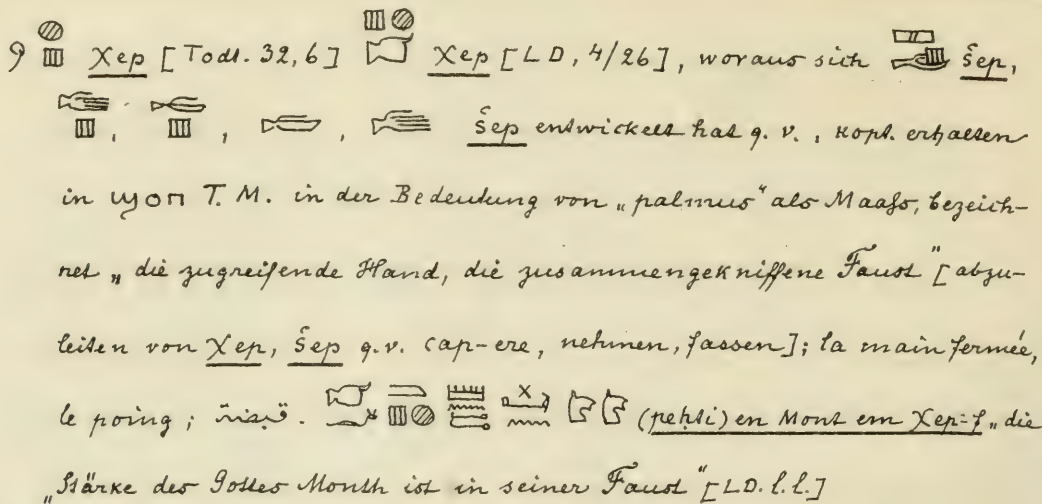 9 Xep [Todt. 32,6] Xep [LD, 4/26], woraus sich šep,
šep entwickelt hat q. v., kopt. erhalten
in ϣοπ T. M. in der Bedeutung von „palmus" als Maaß, bezeich-
net „die zugreifende Hand, die zusammengekniffene Faust" [abzu-
leiten von Xep, šep q.v. cap-ere, nehmen, fassen]; la main fermée,
le poing; (peḥti) en Mont em Xep-f „die
„Stärke des Gottes Month ist in seiner Faust" [LD. l.l.]